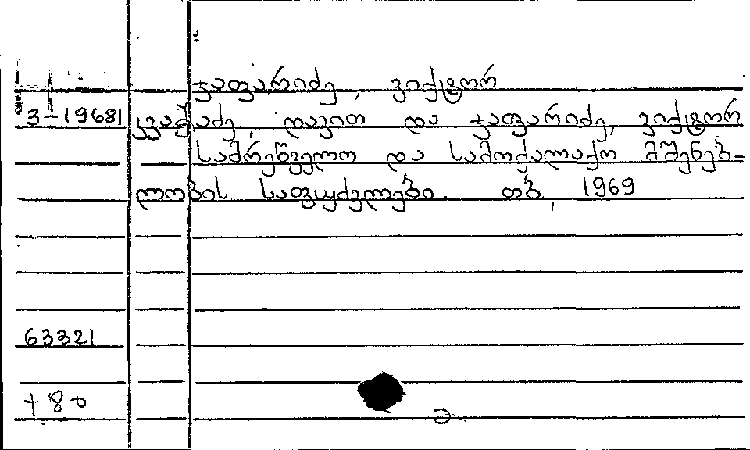 ჯაფარიძე, ვიქტორ
3-19681 კვაჭაძე, დავით და ჯაფარიძე, ვიქტორ
სამრეწველო და სამოქალაქო მშენებ-
ლობის საფუძვლები. თბ., 1969
63321